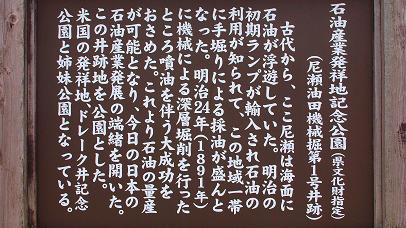 石油産業発祥地記念公園(県文化財指定)
(尼瀬油田機械掘第1号井跡)
古代から、ここ尼瀬は海面に
石油が浮遊していた。明治の
初期ランプが輸入され石油の
利用が知られて、この地域一帯
に手掘りによる採油が盛んと
なった。明治24年(1891年)
に機械による深層掘削を行った
ところ噴油を伴う大成功を
おさめた。これより石油の量産
が可能となり、今日の日本の
石油産業発展の端緒を開いた。
この井跡地を公園とした。
米国の発祥地、ドレーク井記念
公園と姉妹公園となっている。